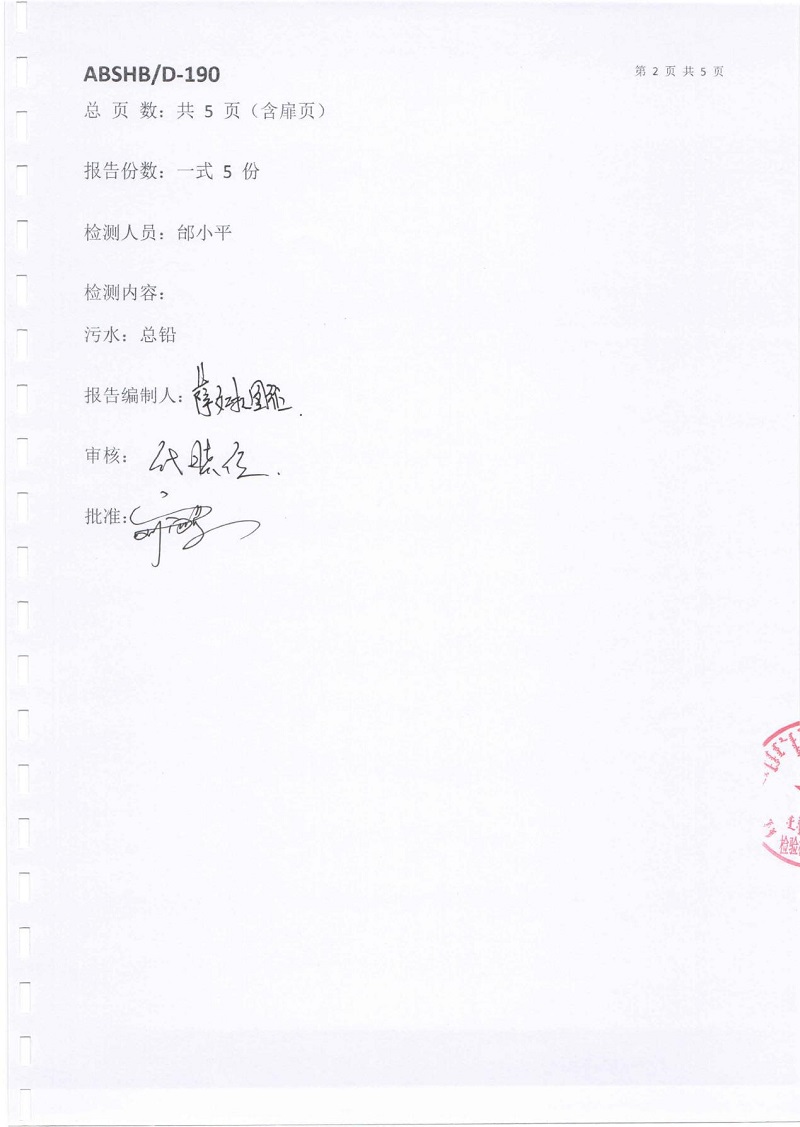 ABSHB/D-190
第 2 页 共 5 页
总 页 数：共 5 页（含扉页）
报告份数：一式 5 份
检测人员：邰小平
检测内容：
污水：总铅
报告编制人：
审核：
批准：
检验